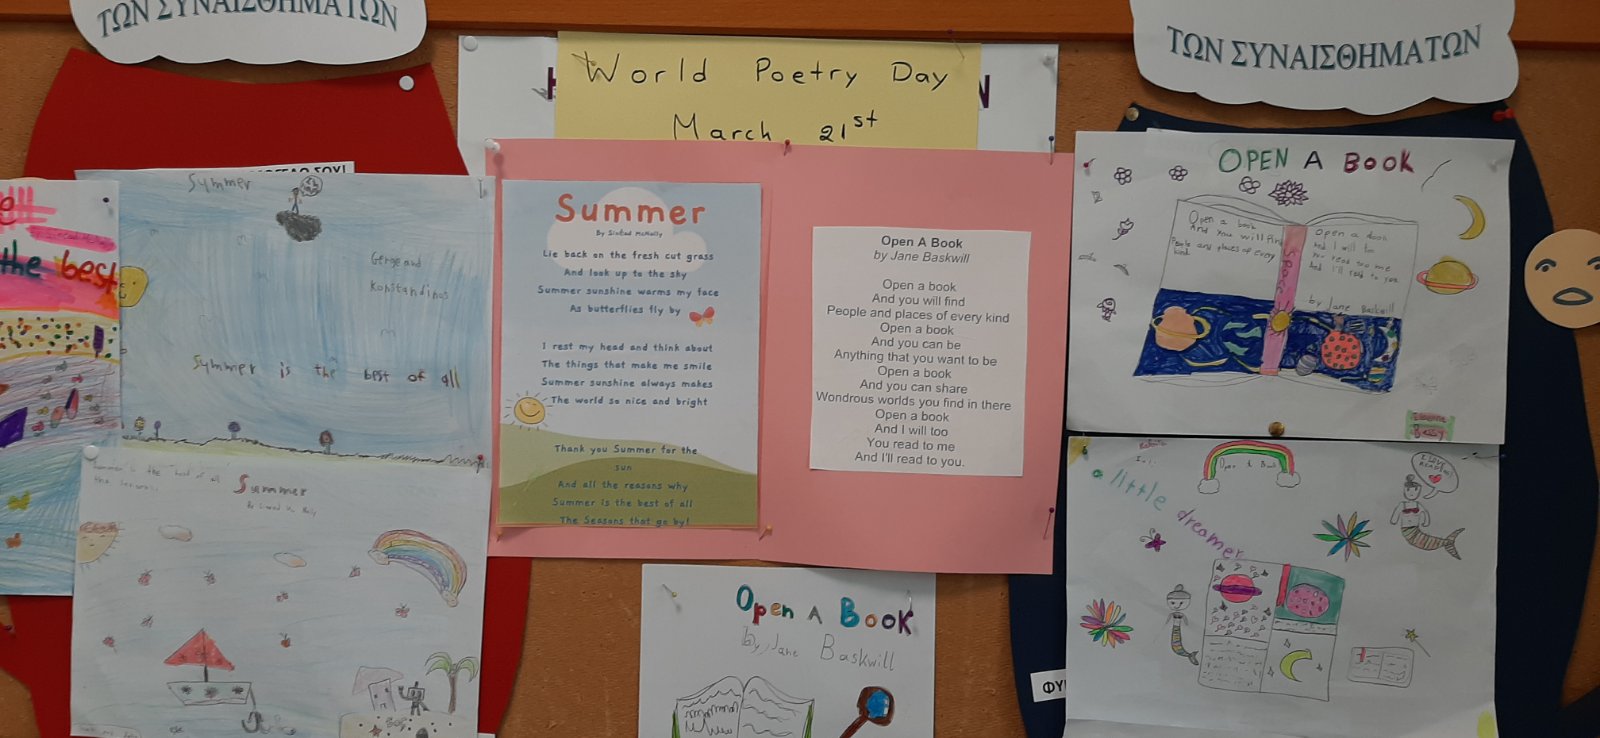 ΤΩΝ ΣΥΝΑΙΣΘΗΜΑΤΩΝ
World Poetry Day
March 21st
ΤΩΝ ΣΥΝΑΙΣΘΗΜΑΤΩΝ
the best
Summer
Gerge and
Konstandinos
Summer is the best of all
Summer
Summer
By Sinéad McNally
Lie back on the fresh cut grass
And look up to the sky
Summer sunshine warms my face
As butterflies fly by
I rest my head and think about
The things that make me smile
Summer sunshine always makes
The world so nice and bright
Thank you Summer for the
sun
And all the reasons why
Summer is the best of all
The Seasons that go by!
Open A Book
by Jane Baskwill
Open a book
And you will find
People and places of every kind
Open a book
And you can be
Anything that you want to be
Open a book
And you can share
Wondrous worlds you find in there
Open a book
And I will too
You read to me
And I'll read to you.
Open A Book
by Jane Baskwill
OPEN A BOOK
Open a book
And you will find
People and places of every
kind
Space
Open a book
And I will too
You read too me
And I'll read to you
by Jane Baskwill
a little dreamer
Open A Book
I LOVE
READING
ΦΥ